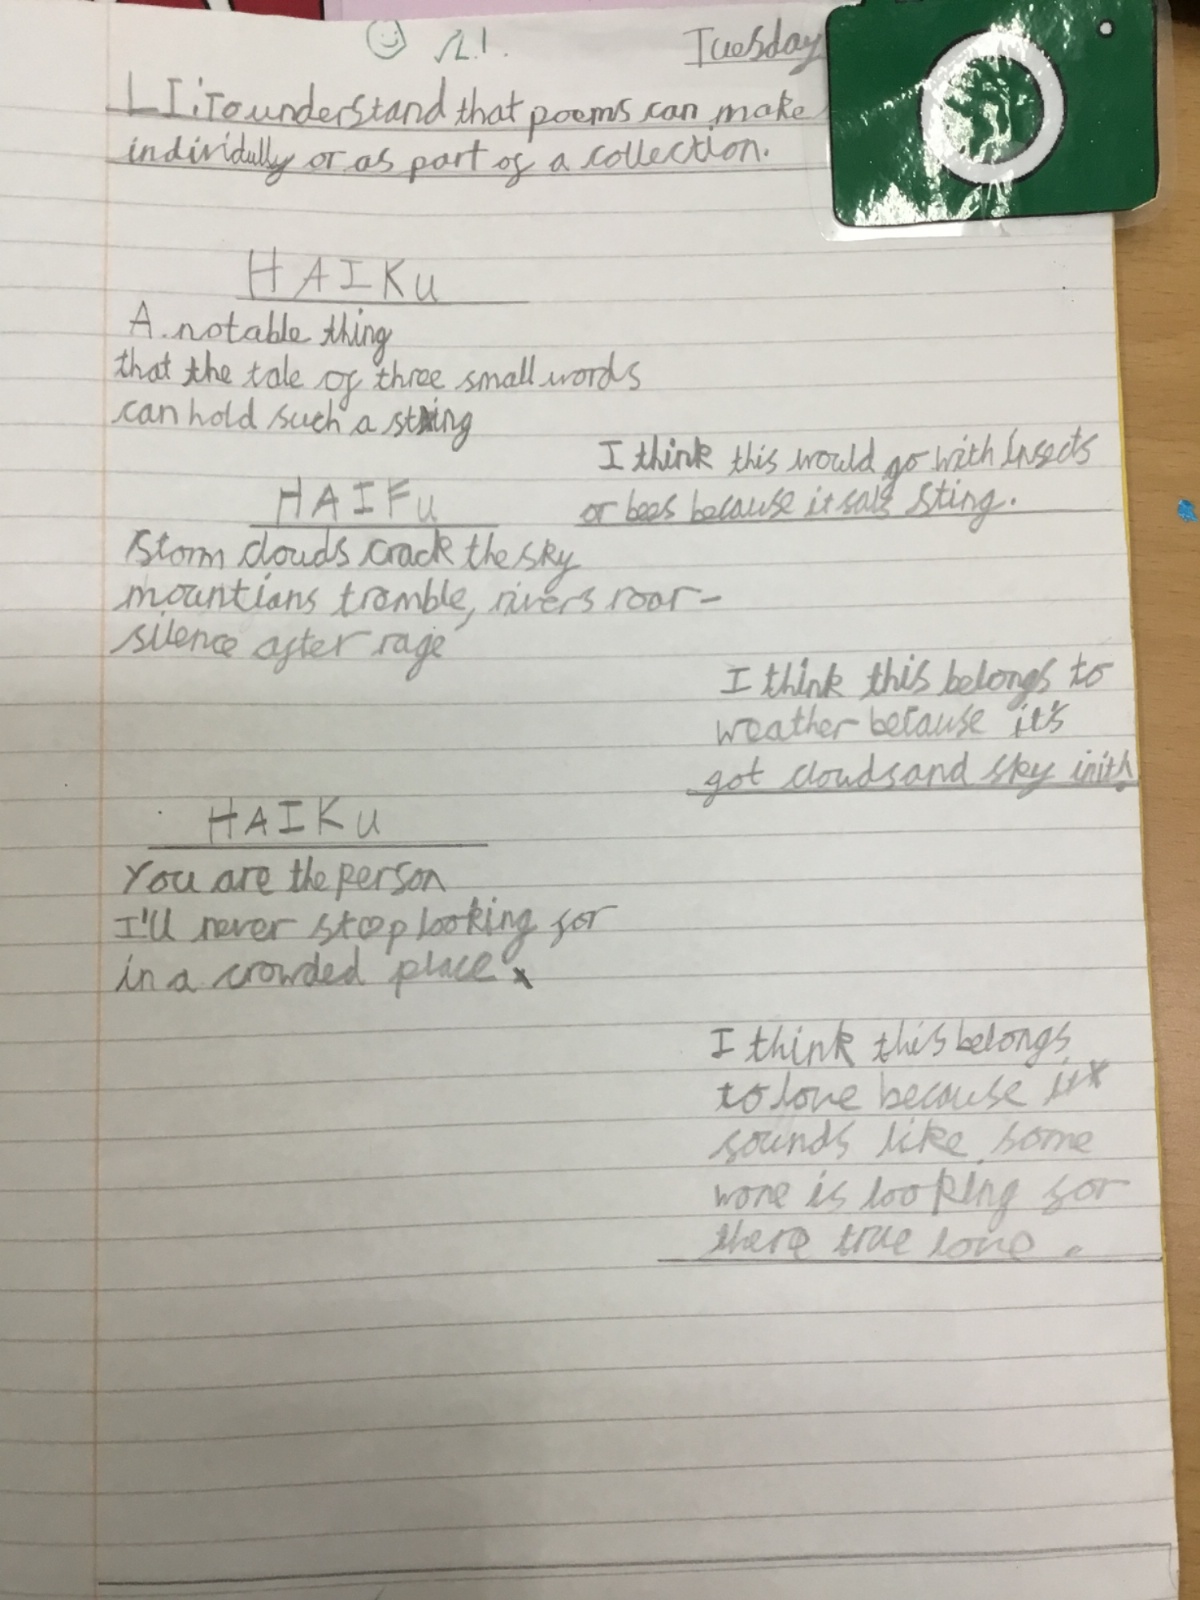 L!.
Tuesday
LI: To understand that poems can make
individully or as part of a collection.
HAIKU
A notable thing
that the tale of three small words
can hold such a sting
I think this would go with insects
or bees because it sais sting.
HAIFU
Storm clouds crack the sky
mountians tramble, rivers roar-
silence after rage
I think this belongs to
weather because it's
got clouds and sky init.
HAIKU
You are the person
I'll never stop looking for
in a crowded place
I think this belongs
to love because it
sounds like some
wone is looking for
there true love.